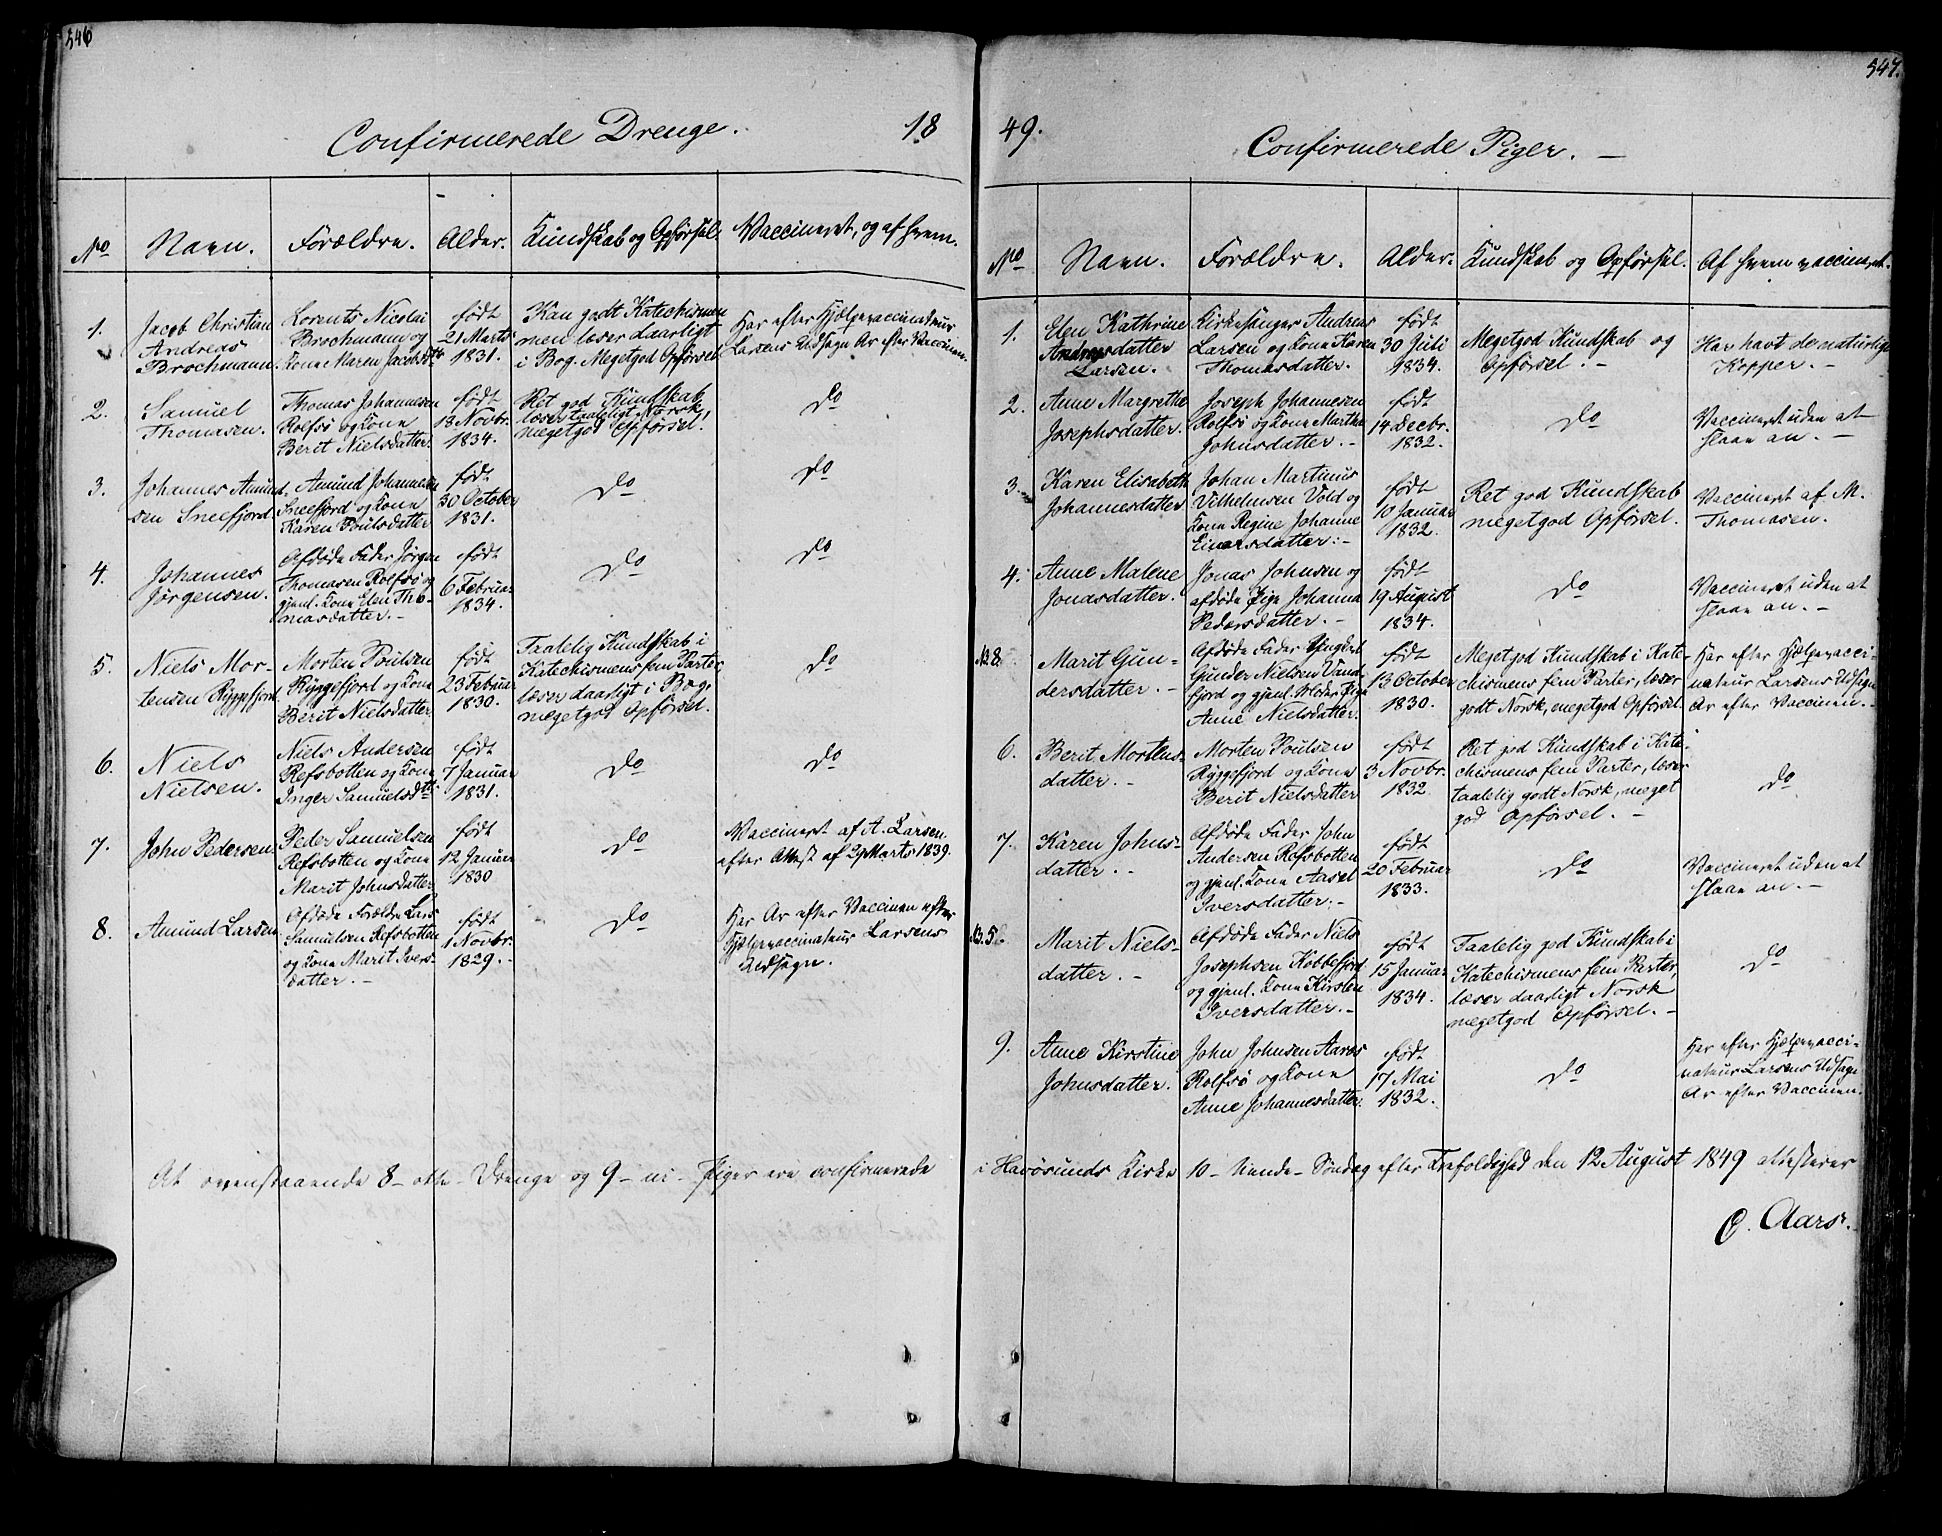 546
Confirmerede Drenge.
18
No
Navn.
Forældre.
Alder.
Kundskab og Opførsel.
Vaccineret, og af hvem.
1.
Jacob Christian
Andreas
Brochmann.
Lorents Nicolai
Brochmann og
Kone Maren Jacobsdtr
født
21 Marts
1831.
Kan godt Katechismen
men læser daarligt
i Bog. Megetgod Opførsel
Har efter Hjælpevaccinateur
Larsens Udsagn Ar efter Vaccinen.
2.
Samuel
Thomasen.
Thomas Johannesen
Rolfsö og Kone
Berit Nielsdatter.
født
18 Novbr.
1834.
Ret god Kundskab
læser taaleligt Norsk,
megetgod Opførsel.
Do
3.
Johannes Amund-
sen Sneefjord.
Amund Johannesen
Sneefjord og Kone
Karen Poulsdatter
født
30 October
1831.
Do
Do
4.
Johannes
Jørgensen.
Afdøde Fader Jørgen
Thomasen Rolfsö og
gjenl. Kone Elen Tho-
masdatter.-
født
6 Februar
1834.
Do
Do
5.
Niels Mor-
tensen Ryggefjord
Morten Poulsen
Ryggefjord og Kone
Berit Nielsdatter.
født
23 Februar
1830.
Taalelig Kundskab i
Katechismens fem Parter
læser daarligt i Bog,
megetgod Opførsel.
Do
6.
Niels
Nielsen.
Niels Andersen
Refsbotten og Kone
Inger Samuelsdtr
født
7 Januar
1831.
Do
Do
7.
John Pedersen.
Peder Samuelsen
Refsbotten og Kone
Marit Johnsdatter
født
12 Januar
1830
Do
Vaccineret af A. Larsen
efter Attest af 29 Marts 1839.
8.
Amund Larsen.
Afdøde Forældre Lars
Samuelsen Refsbotten
og Kone Marit Ivers-
datter.-
født
1 Novbr.
1829.-
Do
Har Ar efter Vaccinen efter
Hjælpevaccinateur Larsens
Udsagn.
At ovenstaaende 8- otte- Drenge og 9- ni- Piger ere confirmerede
547.
49.
Confirmerede Piger.-
No
Navn.
Forældre.
Alder.
Kundskab og Opførsel.
Af hvem vaccineret.
1.
Elen Kathrine
Andreasdatter
Larsen.
Kirkesanger Andreas
Larsen og Kone Karen
Thomasdatter.
født
30 Juli
1834.
Megetgod Kundskab og
Opførsel.-
Har havt de naturlige
Kopper.-
2.
Anne Margrethe
Josephsdatter.
Joseph Johannesen
Rolfsö og Kone Marthe
Johnsdatter.-
født
14 Decbr.
1832.
Do
Vaccineret uden at
slaae an.-
3.
Karen Elisabeth
Johannesdatter
Johan Martinus
Vilhelmsen Vold og
Kone Regine Johanne
Einarsdatter:-
født
10 Januar
1832.
Ret god Kundskab
megetgod Opførsel.
Vaccineret af M.
Thomasen.
4.
Anne Malene
Jonasdatter.
Jonas Johnsen og
afdøde Pige Johanna
Pedersdatter.-
født
19 August
1834.
Do
Vaccineret uden at
slaae an.-
8.
Marit Gun-
dersdatter.-
Afdøde Fader Ungkarl
Gunder Nielsen
fjord og gjenl. Moder Pige
Anne Nielsdatter.
født
13 October
1830.
Megetgod Kundskab i Kate-
chismens fem Parter, læser
godt Norsk, megetgod Opførsel.
Har efter Hjælpevacci-
nateur Larsens Udsagn
Ar efter Vaccinen.
6.
Berit Mortens-
datter.-
Morten Poulsen
Ryggefjord og Kone
Berit Nielsdatter
født
3 Novbr.
1832.
Ret god Kundskab i Kate-
chismens fem Parter, læser
taalelig godt Norsk, meget
god Opførsel.-
Do
7.
Karen Johns-
datter.-
Afdøde Fader John
Andersen Refsbotten
og gjenl. Kone Aasel
Iversdatter.-
født
20 Februar
1833.
Do
Vaccineret uden at
slaae an.-
5.
Marit Niels-
datter.-
Afdøde Fader Niels
Josephsen Kobbefjord
og gjenl. Kone Kirsten
Iversdatter.-
født
15 Januar
1834.
Taalelig god Kundskab i
Katechismens fem Parter,
læser daarligt Norsk
megetgod Opførsel.-
Do
9.
Anne Kirstine
Johnsdatter.
John Johnsen Aarøs
Rolfsö og Kone
Anne Johannesdatter.
født
17 Mai
1832.
Do
Har efter Hjælpevacci-
nateur Larsens Udsagn
Ar efter Vaccinen.
i Havösunds Kirke 10- tiende- Søndag efter Trefoldighed den 12 August 1849 attesterer
O. Aars.